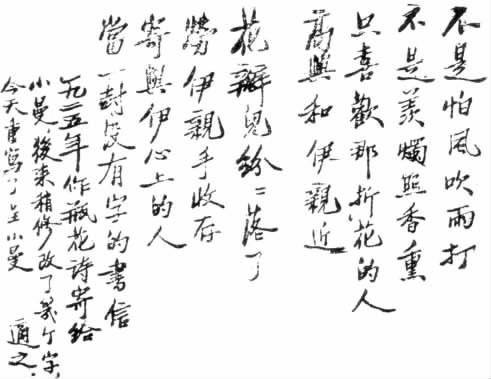 不是怕風吹雨打
不是羨燭照香熏
只喜歡那折花的人
高興和伊親近
花瓣兒紛〻落了
勞伊親手收存
寄與伊心上的人
當一封没有字的書信
一九二五年作瓶花詩寄給
小曼，後来稍修改了幾个字，
今天重寫了呈小曼
適之．